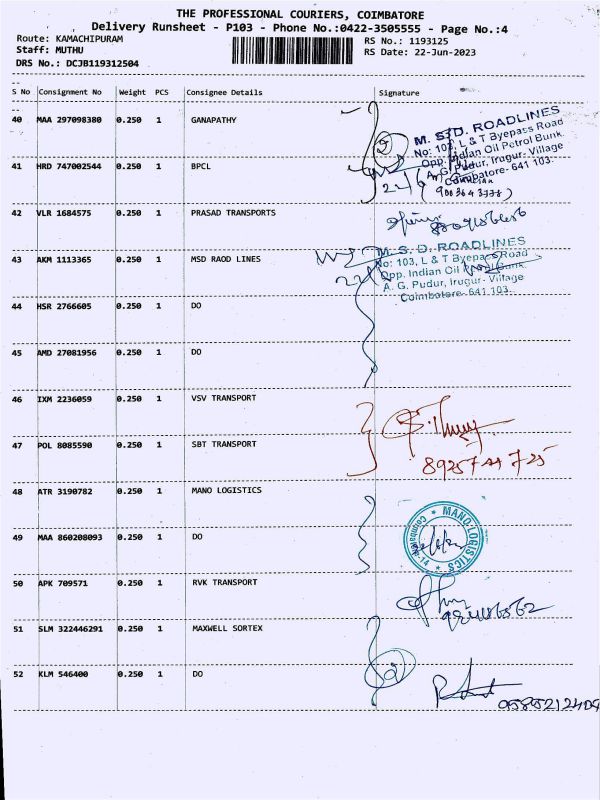 THE PROFESSIONAL COURIERS, COIMBATORE
Delivery Runsheet - P103 - Phone No.:0422-3505555 - Page No.:4
Route: KAMACHIPURAM
RS No.: 1193125
Staff: MUTHU
RS Date: 22-Jun-2023
DRS No.: DCJB119312504
S No Consignment No Weight PCS Consignee Details Signature
40 MAA 297098380 0.250 1 GANAPATHY
M. S. D. ROADLINES
No: 103, L & T Byepass Road
Opp. Indian Oil Petrol Bunk.
A. G. Pudur, Irugur- Village
Coimbatore- 641 103.
41 HRD 747002544 0.250 1 BPCL
42 VLR 1684575 0.250 1 PRASAD TRANSPORTS
43 AKM 1113365 0.250 1 MSD RAOD LINES
M. S. D. ROADLINES
No: 103, L & T Byepass Road
Opp. Indian Oil Petrol Bunk.
A. G. Pudur, Irugur- Village
Coimbatore- 641 103.
44 HSR 2766605 0.250 1 DO
45 AMD 27081956 0.250 1 DO
46 IXM 2236059 0.250 1 VSV TRANSPORT
47 POL 8085590 0.250 1 SBT TRANSPORT
48 ATR 3190782 0.250 1 MANO LOGISTICS
MANO LOGISTICS
49 MAA 860208093 0.250 1 DO
50 APK 709571 0.250 1 RVK TRANSPORT
51 SLM 322446291 0.250 1 MAXWELL SORTEX
52 KLM 546400 0.250 1 DO